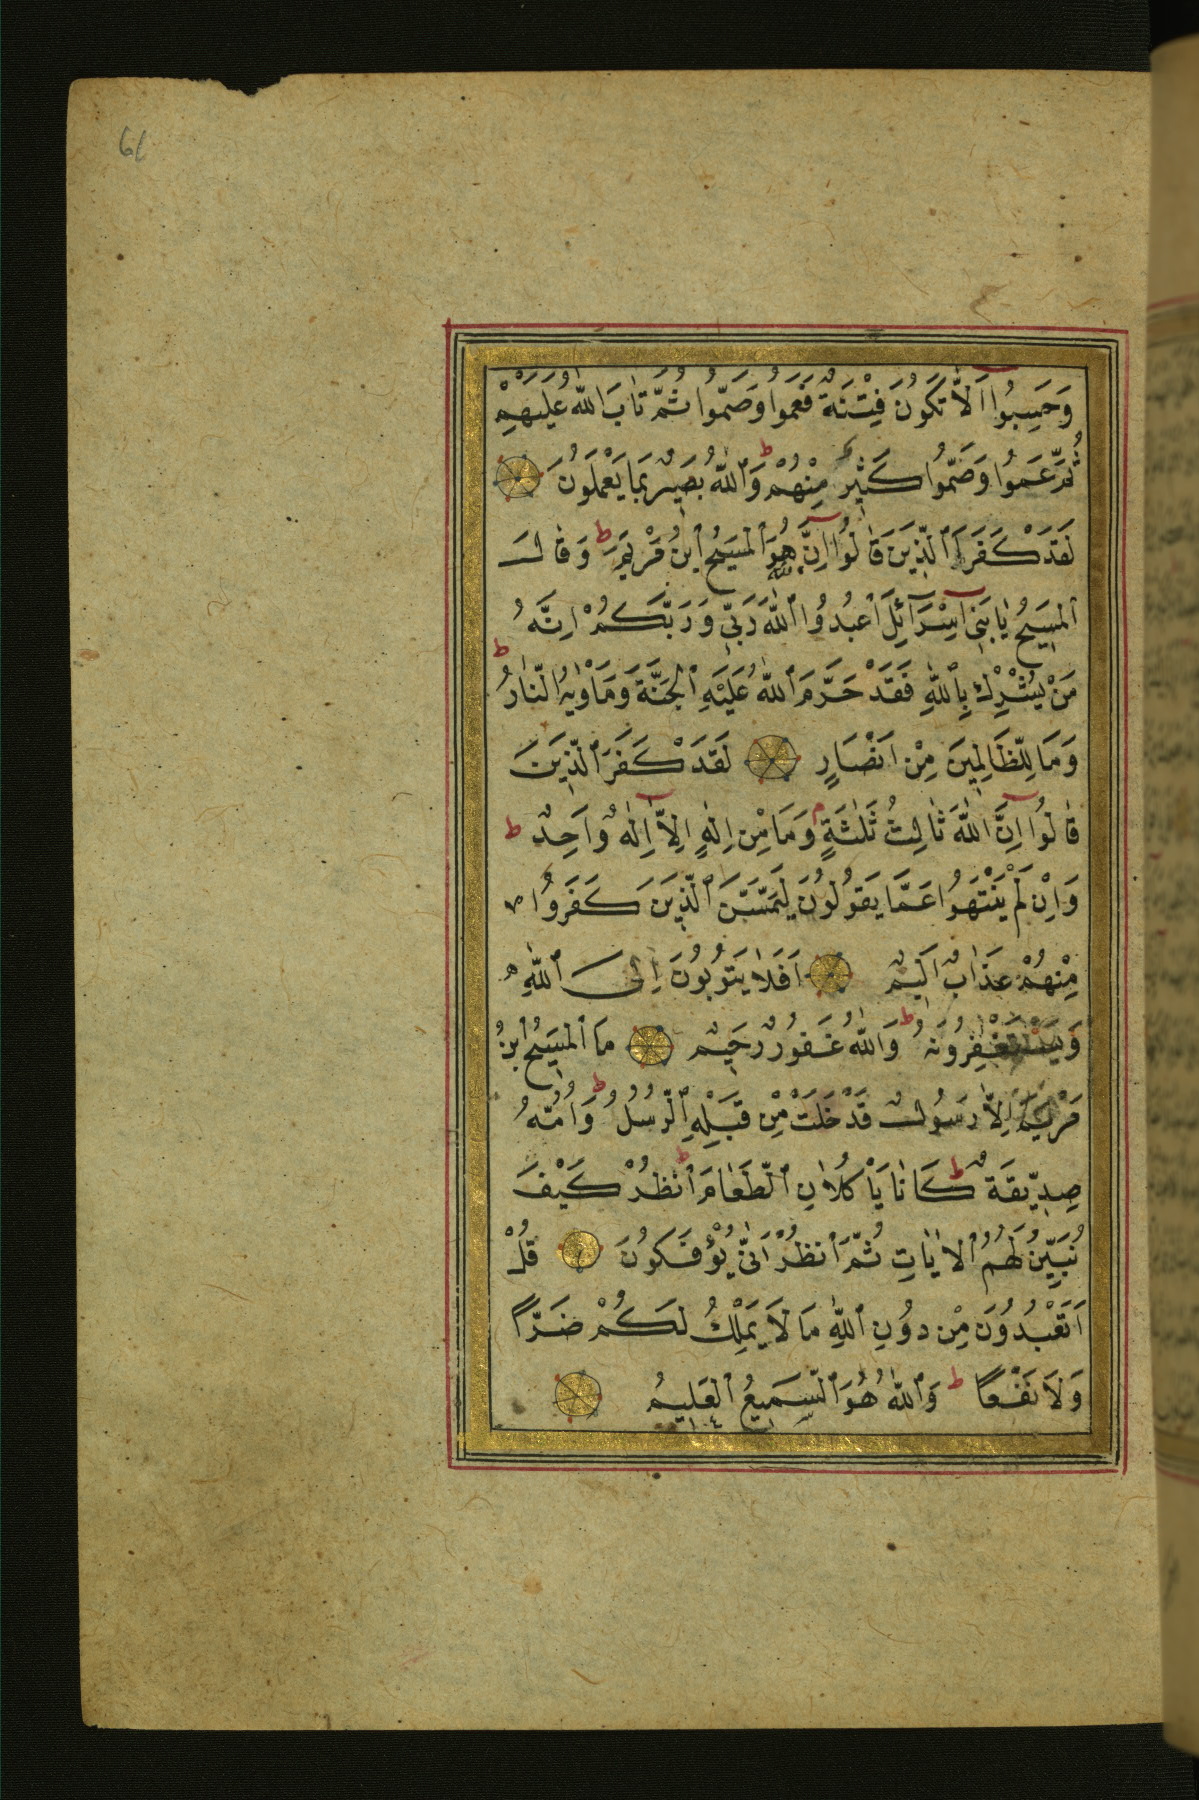 61
وَحَسِبُوا اَلَّا تَكُونَ فِتْنَةٌ فَعَمُوا وَصَمُّوا ثُمَّ تَابَ اللّٰهُ عَلَيْهِمْ
ثُمَّ عَمُوا وَصَمُّوا كَثِيرٌ مِنْهُمْ ط وَاللّٰهُ بَصِيرٌ بِمَا يَعْمَلُونَ
لَقَدْ كَفَرَ الَّذِينَ قَالُوا اِنَّ اللّٰهَ هُوَ الْمَسِيحُ ابْنُ مَرْيَمَ ط وَقَالَ
الْمَسِيحُ يَا بَنِي اِسْرَآئِلَ اعْبُدُوا اللّٰهَ رَبِّي وَرَبَّكُمْ اِنَّهُ
مَنْ يُشْرِكْ بِاللّٰهِ فَقَدْ حَرَّمَ اللّٰهُ عَلَيْهِ الْجَنَّةَ وَمَاْوٰيهُ النَّارُ ط
وَمَا لِلظَّالِمِينَ مِنْ اَنْصَارٍ لَقَدْ كَفَرَ الَّذِينَ
قَالُوا اِنَّ اللّٰهَ ثَالِثُ ثَلٰثَةٍ م وَمَا مِنْ اِلٰهٍ اِلَّا اِلٰهٌ وَاحِدٌ ط
وَاِنْ لَمْ يَنْتَهُوا عَمَّا يَقُولُونَ لَيَمَسَّنَّ الَّذِينَ كَفَرُوا
مِنْهُمْ عَذَابٌ اَلِيمٌ اَفَلَا يَتُوبُونَ اِلَى اللّٰهِ
وَيَسْتَغْفِرُونَهُ ط وَاللّٰهُ غَفُورٌ رَحِيمٌ مَا الْمَسِيحُ ابْنُ
مَرْيَمَ اِلَّا رَسُولٌ قَدْ خَلَتْ مِنْ قَبْلِهِ الرُّسُلُ ط وَاُمُّهُ
صِدِّيقَةٌ ط كَانَا يَاْكُلَانِ الطَّعَامَ ط اُنْظُرْ كَيْفَ
نُبَيِّنُ لَهُمُ الْاٰيَاتِ ثُمَّ انْظُرْ اَنّٰى يُؤْفَكُونَ قُلْ
اَتَعْبُدُونَ مِنْ دُونِ اللّٰهِ مَا لَا يَمْلِكُ لَكُمْ ضَرًّا
وَلَا نَفْعًا ط وَاللّٰهُ هُوَ السَّمِيعُ الْعَلِيمُ